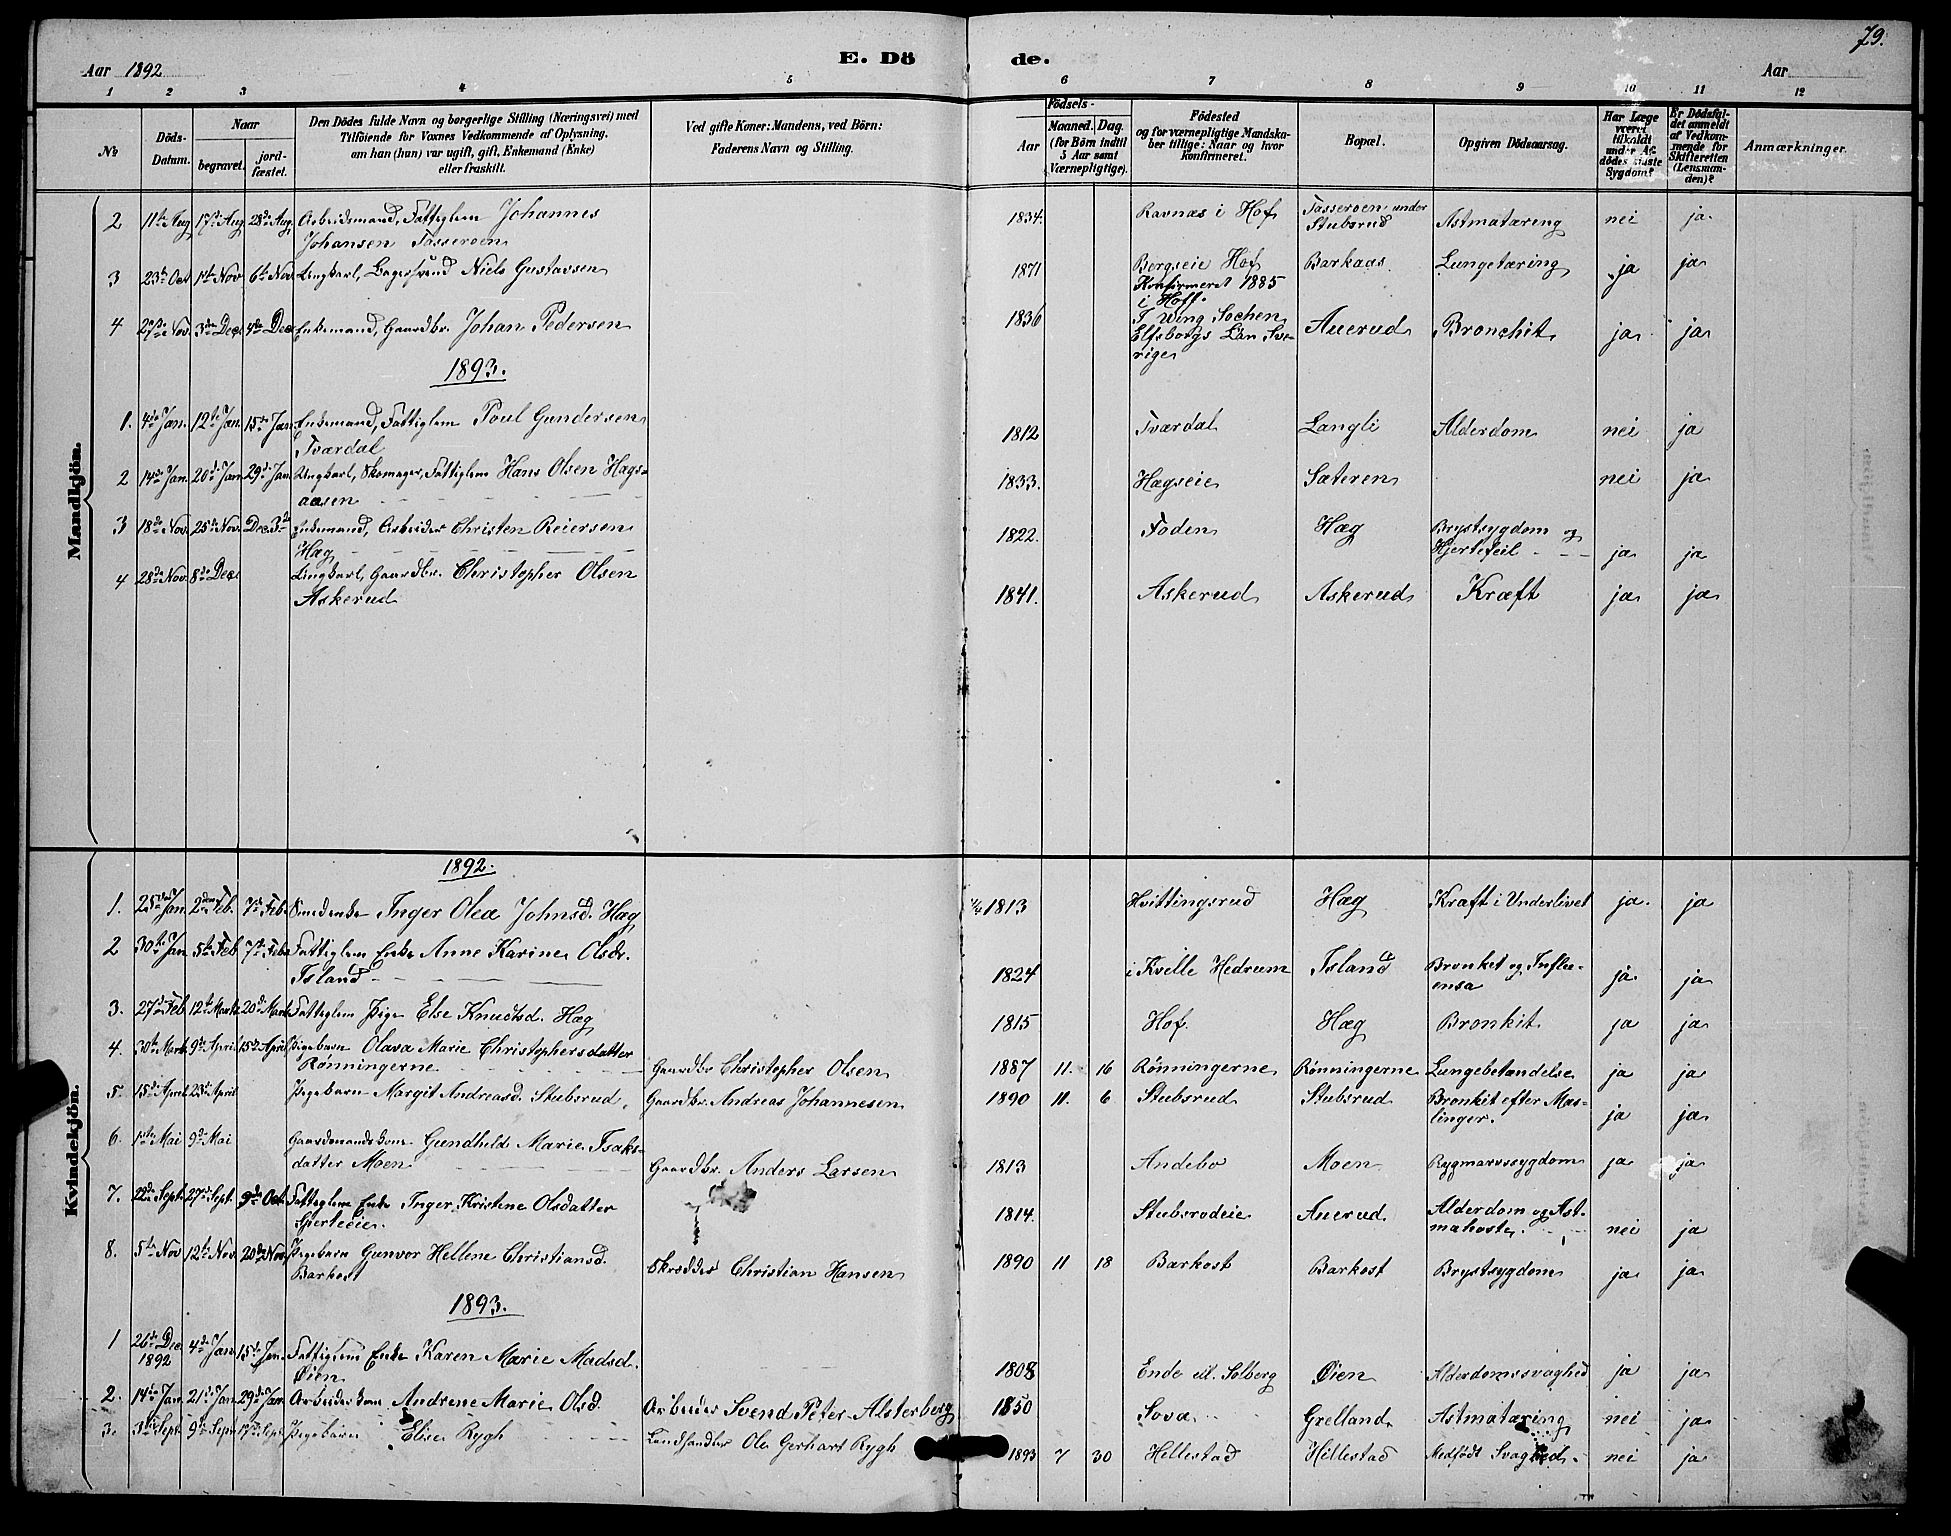 79.
E. Dö de.
Aar 1892
Aar
1 2 3 4 5 6 7 8 9 10 11 12
№
Döds-
Datum.
Naar
begravet.
jord-
fæstet.
Den Dödes fulde Navn og borgerlige Stilling (Næringsvei) med
Tilföiende for Voxnes Vedkommende af Oplysning,
om han (hun) var ugift, gift, Enkemand (Enke)
eller fraskilt.
Ved gifte Koner: Mandens, ved Börn:
Faderens Navn og Stilling.
Födsels-
Aar
Maaned. Dag.
(for Börn indtil
5 Aar samt
Værnepligtige).
Födested
og for værnepligtige Mandska-
ber tillige: Naar og hvor
konfirmeret.
Bopæl.
Opgiven Dödsaarsag.
Har Læge
været
tilkaldt
under Af-
dödes sidste
Sygdom?
Er Dödsfal-
det anmeldt
af Vedkom-
mende for
Skifteretten
(Lensman-
den)?
Anmærkninger.
Mandkjön.
2 11te Aug 17de Aug 28de Aug Arbeidsmand, Fattiglem Johannes
Johansen Tasseroen 1834. Ravnæs i Hof Tasseroen under
Stubsrud Astmatæring nei ja
3 23de Oct 1ste Nov 6te Nov Ungkarl, Bagersvend Niels Gustavsen 1871 Borgseie Hof
Konfirmeret 1885
i Hoff. Barkaas Lungetæring ja ja
4 27de Nov. 3die Dec 4de Dec Enkemand, Gaardbr. Johan Pedersen 1836 T. Wing Sochen
Elfsborgs Län Sve-
rige Auerud Bronchit ja ja
1893.
1. 4de Jan. 12te Jan. 15de Jan Enkemand, Fattiglem Poul Gundersen
Tværdal 1812 Tværdal Langli Alderdom nei ja
2 14de Jan. 20de Jan 29de Jan. Ungkarl, Skomager, Fattiglem Hans Olsen Hægs-
aasen 1833. Hægseie Sæteren nei ja
3 18de Nov. 25de Nov. Dec. 3de Enkemand, Arbeider Christen Reiersen
Hæg 1822. Foden Hæg Brystsygdom og
Hjertefeil ja ja
4 28de Nov. 8de Dec Ungkarl, Gaardbr. Christopher Olsen
Askerud 1841. Askerud Askerud Kræft ja ja
Kvindekjön.
1892.
1. 25de Jan. 2den Feb. 7de Feb. Smedenke Inger Olea Johnsd. Hæg 1/4 1813 Hvittingsrud Hæg Kræft i Underlivet ja ja
2 30te Jan 5te Feb 7de Feb. Fattiglem Enke Anne Karine Olsdr.
Island 1824 i Kvelle Hedrum Island Bronkit og Influ-
ensa ja ja
3. 27de Feb 12te Marts 20de Marts Fattiglem Pige Else Knudtsd. Hæg 1815 Hof. Hæg Bronkit ja ja
4. 30te Marts 9de April 15de April Pigebarn Olava Marie Christophersdatter
Rønningerne Gaardbr Christopher Olsen 1887 11. 16 Rønningerne Rønningerne Lungebetændelse ja ja
5. 15de April 23de April Pigebarn Margit Andreasd. Stubsrud, Gaardbr. Andreas Johannesen 1890 11. 6 Stubsrud Stubsrud Bronkit efter Mæs-
linger. ja ja
6. 1ste Mai 9de Mai Gaardmandskone Gundhild Marie Isaks-
datter Moen Gaardbr. Anders Larsen 1813 Andebo Moen Rygmarvssygdom ja ja
7. 22de Sept. 27de Sept. 9de Oct. Fattiglem Enke Inger Kristene Olsdatter
Sperteeie. 1814. Stubsrodeie Auerud Alderdom og Ast-
mahoste. nei ja
8. 5te Nov 12te Nov. 20de Nov. Pigebarn Gunvor Hellene Christiansd.
Barkost Skrædder Christian Hansen 1890 11 18 Barkost Barkost Brystsygdom ja ja
1893.
1 26de Dec
1892 4de Jan 15de Jan. Fattiglem Enke Karen Marie Madsd.
Øien 1808 Ende eil. Solberg Øien Alderdomssvaghed ja ja
2. 14de Jan. 21de Jan 29de Jan Arbeiderskone Andrene Marie Olsd. Arbeider Svend Peter Alsterberg 1850 Sova Grelland Astmatæring nei ja
3. 3die Sept. 9de Sept. 17de Sept. Pigebarn Elise Rygh Landhandler Ole Gerhart Rygh 1893 7 30 Hellestad Hillestad Medfødt Svaghed nei ja